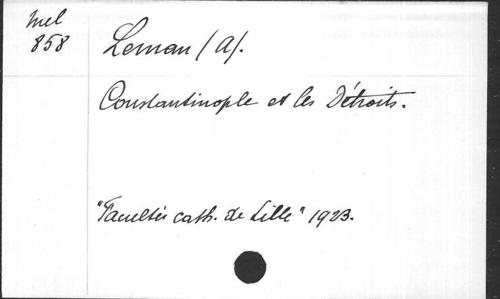 Mel
858
Leman (A).
Constantinople et les Détroits.
"Facultés cath. de Lille" 1923.